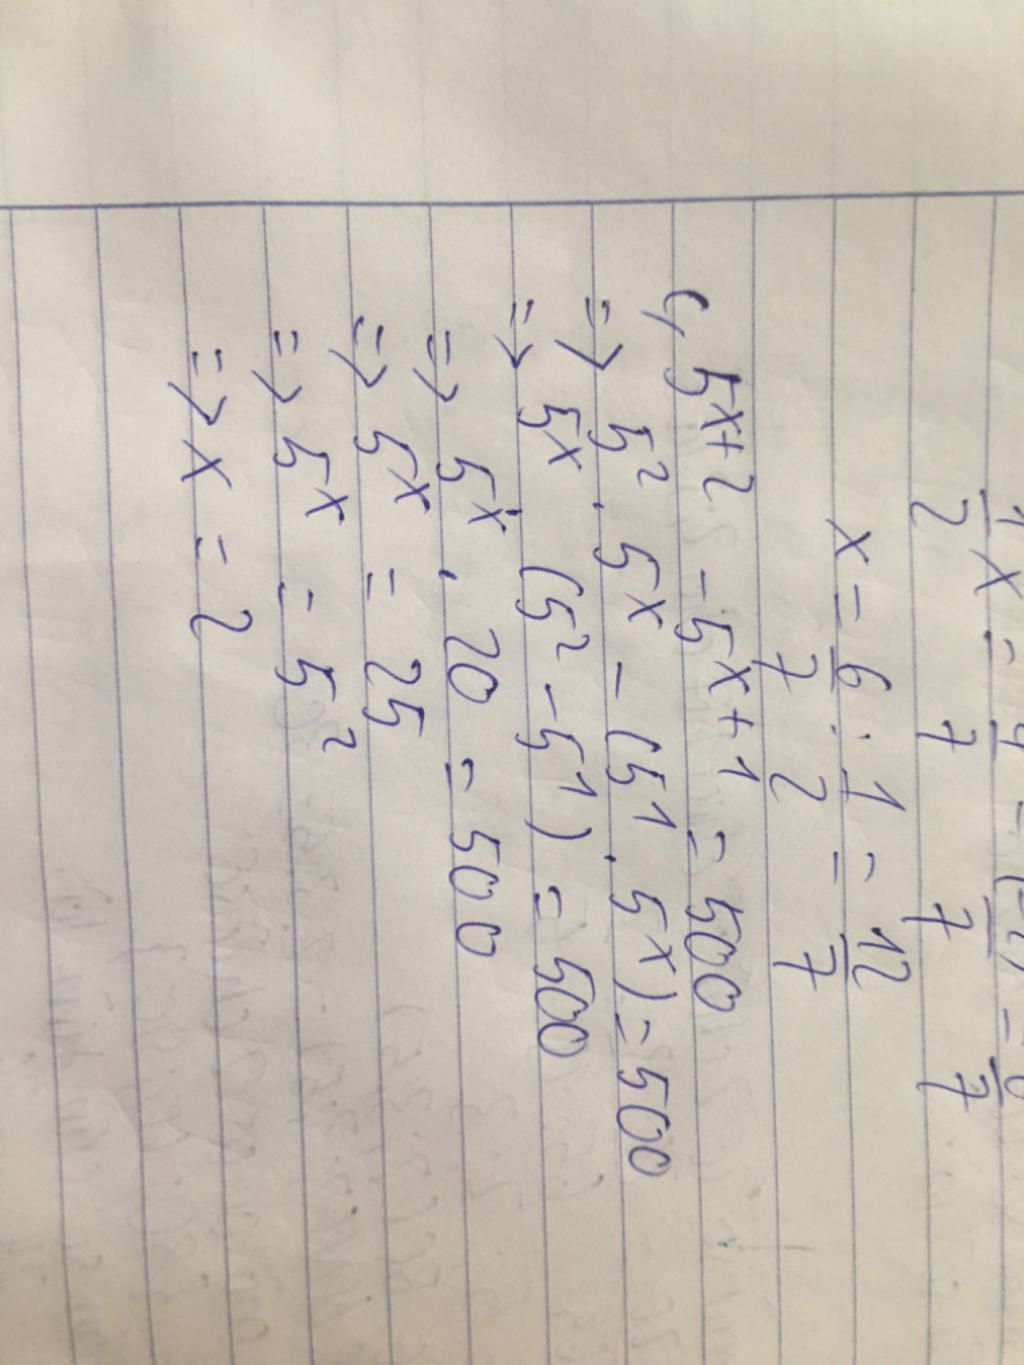 1/2 x = 4/7 - (-2)/7 = 6/7
x = 6/7 : 1/2 = 12/7
c, 5^{x+2} - 5^{x+1} = 500
=> 5^2 . 5^x - (5^1 . 5^x) = 500
=> 5^x . (5^2 - 5^1) = 500
=> 5^x . 20 = 500
=> 5^x = 25
=> 5^x = 5^2
=> x = 2